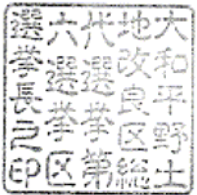 大和平野土
地改良区総
代選挙第
六選挙区
選挙長之印